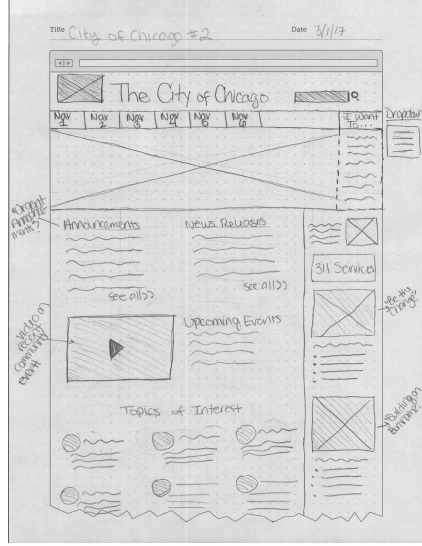 Title City of Chicago #2
Date 3/1/17
The City of Chicago
Nav 1
Nav 2
Nav 3
Nav 4
Nav 5
Nav 6
I Want To...
Dropdown
*Urgent Announcements?
Announcements
News Releases
see all>>
see all>>
311 Services
Video on recent community event
Upcoming Events
Be the Change?
Topics of Interest
Building on Burnham?